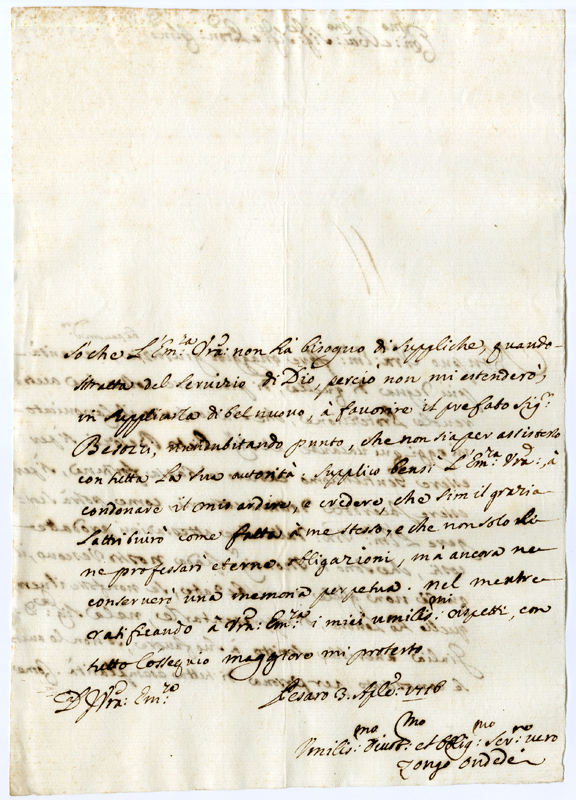 Sò che L'Em:za Vra: non hà bisogno di suppliche, quando
tratta del servizio di Dio, perciò non mi estenderò,
in supplicarla di bel nuovo, à favorire il prefato Sig:r
Besozzi, non dubitando punto, che non sia per assisterlo
con tutta La sua autorità. Supplico bensì L'Em:za Vra:, à
condonare il mio ardire, e credere, che simil grazia
L'attribuirò come fatta à me stesso, e che non solo
ne professarò eterne obligazioni, mà ancora ne
conserverò una memoria perpetua. Nel mentre
ratificando à Vra: Em:za i miei umilis:mi rispetti, con
tutto L'ossequio maggiore mi protesto
D V'ra: Em:za Pesaro 3. 1716
Umilis:mo Divot:mo et Oblig:mo Ser:re vero
Zongo Ondedei